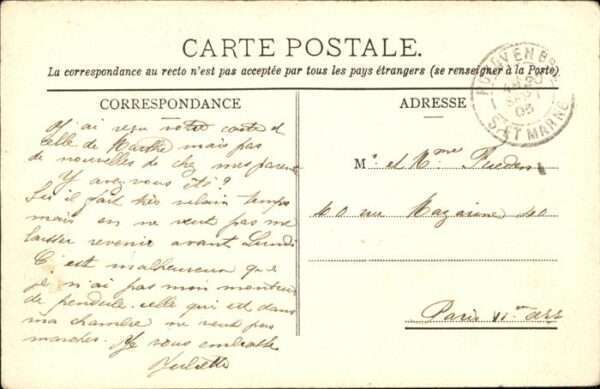 CARTE POSTALE.
La correspondance au recto n'est pas acceptée par tous les pays étrangers (se renseigner à la Poste)
CORRESPONDANCE
J'ai reçu votre carte et
celle de Marthe mais pas
de nouvelles de chez mes parents
Y avez vous été?
Ici il fait très vilain temps
mais on ne veut pas me
laisser revenir avant Lundi
C'est malheureux que
je n'ai pas mon monteur
de pendule. celle qui est dans
ma chambre ne veut pas
marcher. Je vous embrasse
Juliette
ADRESSE
M. et Mme
40 rue Mazarine 40
Paris
05
S. ET MARNE